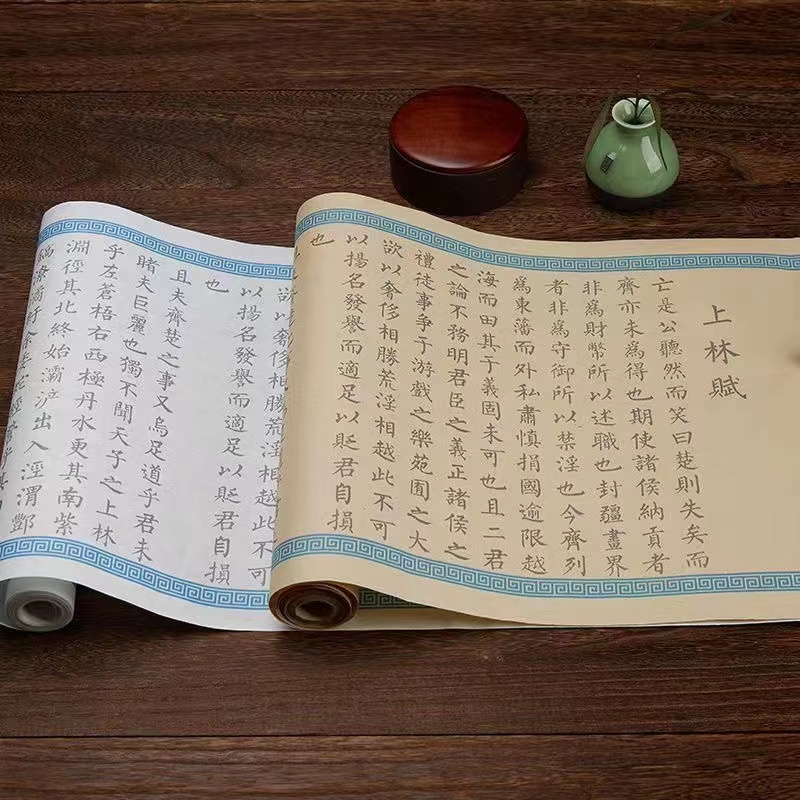 上林賦
亡是公聽然而笑曰楚則失矣而
齊亦未爲得也期使諸侯納貢者
非爲財幣所以述職也封疆畫界
者非爲守御所以禁淫也今齊列
爲東藩而外私肅慎捐國逾限越
海而田其于義固未可也且二君
之論不務明君臣之義正諸侯之
禮徒事爭于游戲之樂苑囿之大
欲以奢侈相勝荒淫相越此不可
以揚名發譽而適足以貶君自損
也
欲以奢侈相勝荒淫相越此不可
以揚名發譽而適足以貶君自損
也
且夫齊楚之事又烏足道乎君未
睹夫巨麗也獨不聞天子之上林
乎左蒼梧右西極丹水更其南紫
淵徑其北終始灞滻出入涇渭酆